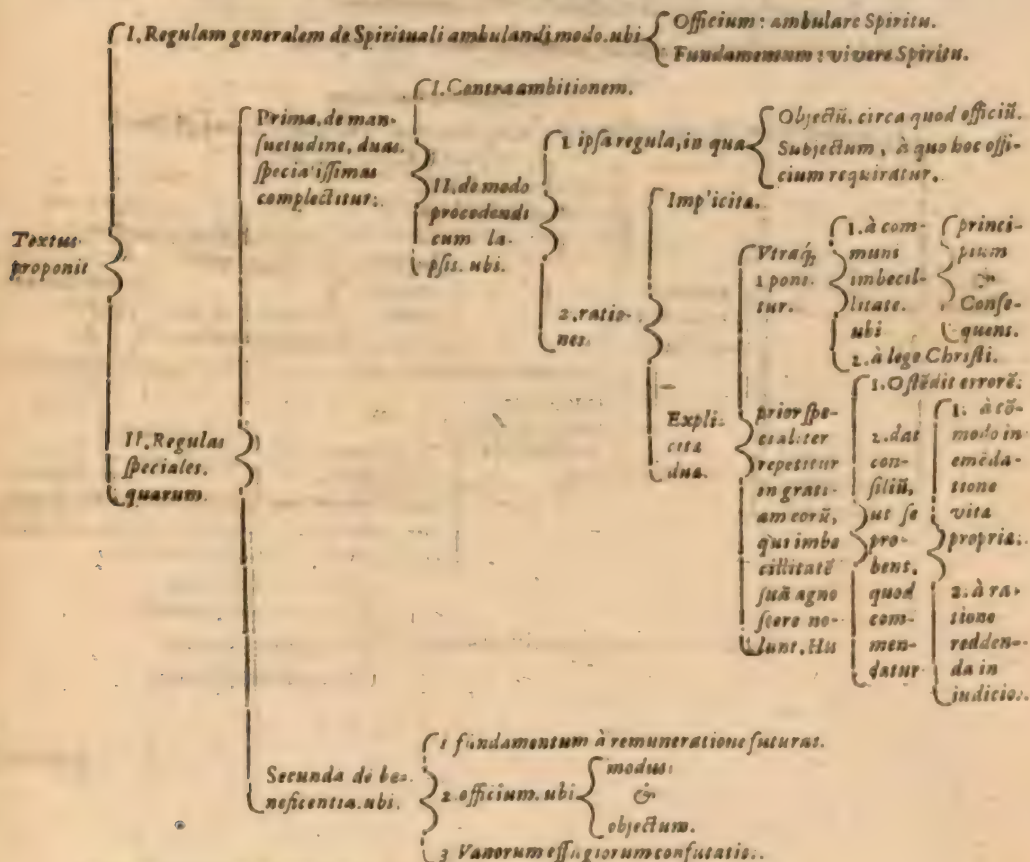 I. Regulam generalem de Spirituali ambulandi modo. ubi
Officium: ambulare Spiritu.
Fundamentum: vivere Spiritu.
Textus
proponit
Prima. de man-
suetudine, duas.
specialissimas
complectitur:
I. Contra ambitionem.
II. de modo
procedendi
cum la-
psis. ubi.
1 ipsa regula, in qua
Objectũ, circa quod officiũ.
Subjectum, à quo hoc offi-
cium requiratur.
2. ratio-
nes.
Imp'icita.
Expli-
cita
dua.
Vtraq́;
1 poni-
tur.
1. à com-
muni
imbecil-
litate.
ubi
princi-
pium
&
Conse-
quens.
2. à lege Christi.
prior spe-
cialiter
repetitur
in grati-
am eorũ,
qui imbe
cillitatẽ
suã agno
scere no-
lunt. Hu
1. Ostẽdit errorẽ.
2. dat
con-
siliũ,
ut se
pro-
bent.
quod
com-
men-
datur
1. à cõ-
modo in
emẽda-
tione
vita
propria.
2. à ra-
tione
redden-
da in
judicio.
II. Regulas
speciales.
quarum.
Secunda de be-
neficentia. ubi.
1 fundamentum à remuneratione futuras.
2. officium. ubi
modus:
&
objectum.
3 Vanorum effugiorum confutatio.